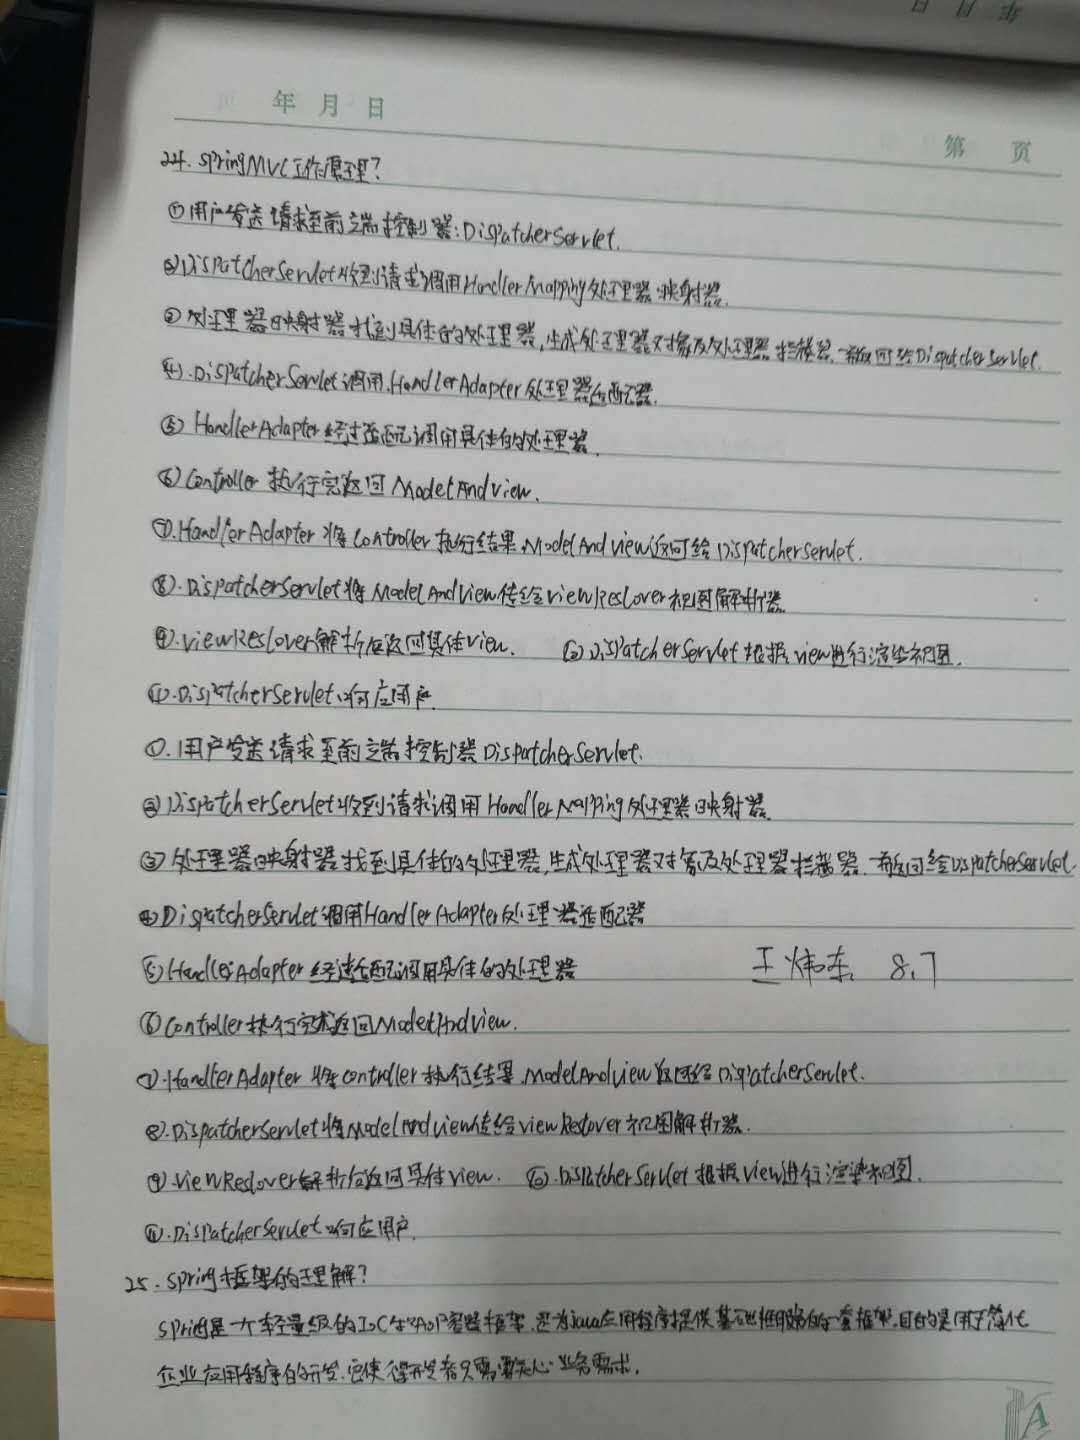 年 日 日
年 月 日
第 页
24. SpringMVC工作原理?
①用户发送请求至前端控制器:DispatcherServlet.
②DispatcherServlet收到请求调用HandlerMapping处理器映射器.
③处理器映射器找到具体的处理器,生成处理器对象及处理器拦截器,一并返回给DispatcherServlet.
④.DispatcherServlet调用HandlerAdapter处理器适配器.
⑤ HandlerAdapter经过适配调用具体的处理器.
⑥Controller执行完返回ModelAndView.
⑦.HandlerAdapter将Controller执行结果ModelAndView返回给DispatcherServlet.
⑧.DispatcherServlet将ModelAndView传给ViewReslover视图解析器
⑨.ViewReslover解析后返回具体View. ⑩DispatcherServlet根据View进行渲染视图.
⑪.DispatcherServlet响应用户.
①.用户发送请求至前端控制器DispatcherServlet.
②DispatcherServlet收到请求调用HandlerMapping处理器映射器.
③处理器映射器找到具体的处理器,生成处理器对象及处理器拦截器.一并返回给DispatcherServlet.
④DispatcherServlet调用HandlerAdapter处理器适配器
⑤HandlerAdapter经过适配调用具体的处理器
王炜东 8.7
⑥Controller执行完成返回ModelAndView.
⑦.HandlerAdapter将controller执行结果ModelAndView返回给DispatcherServlet.
⑧.DispatcherServlet将ModelAndView传给ViewReslover视图解析器.
⑨.ViewReslover解析后返回具体View. ⑩.DispatcherServlet根据View进行渲染视图.
⑪.DispatcherServlet响应用户.
25.Spring框架的理解?
Spring是一个轻量级的IoC与AOP容器框架.是为Java应用程序提供基础性服务的一套框架.目的是用于简化
企业应用程序的开发.它使得开发者只需要关心业务需求.